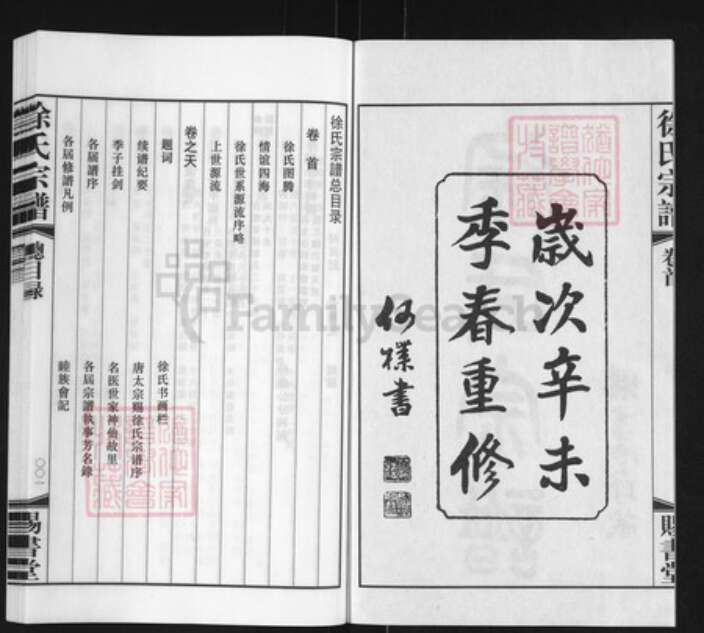 徐氏宗譜
卷首
賜書堂
歲次辛未
季春重修
何樸書
徐氏宗譜总目录
卷首
徐氏图腾
情谊四海
徐氏世系源流序略
上世源流
卷之天
题词
徐氏书画栏
续谱纪要
唐太宗赐徐氏宗谱序
季子挂剑
名医世家神仙故里
各届譜序
各届宗譜执事芳名錄
各届修譜凡例
睦族會記
徐氏宗譜
總目录
〇〇一
賜書堂
FamilySearch